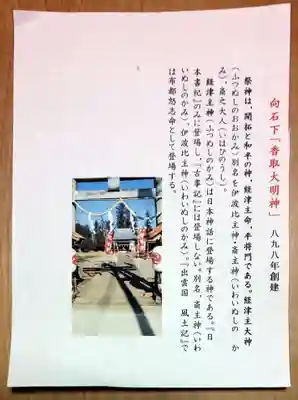 向石下「香取大明神」 八九八年創建
祭神は、開拓と和平の神、経津主命、平将門である。経津主大神
(ふつぬしのおおかみ)別名を伊波比主神・斎主神(いわいぬしの か
み)、斎之大人(いはひのうし)。
経津主神(ふつぬしのかみ)は日本神話に登場する神である。『日
本書紀』のみに登場し、『古事記』には登場しない。別名、斎主神(いわ
いぬしのかみ)、伊波比主神(いわいぬしのかみ)。『出雲国 風土記』で
は布都怒志命として登場する。